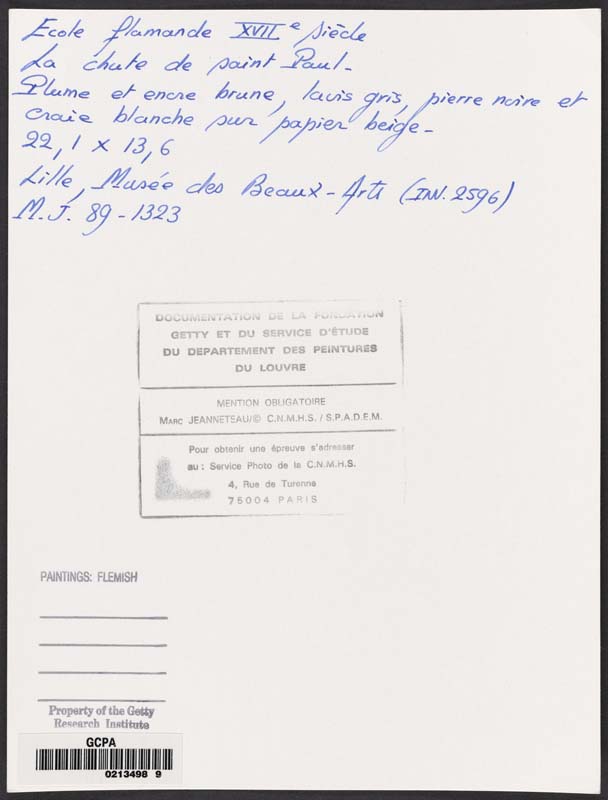 Ecole flamande XVIIe siècle
La chute de saint Paul-
Plume et encre brune, lavis gris, pierre noire et
craie blanche sur papier beige-
22,1 x 13,6
Lille, Musée des Beaux-Arts (INV. 2596)
M.J. 89-1323
DOCUMENTATION DE LA FONDATION
GETTY ET DU SERVICE D'ÉTUDE
DU DEPARTEMENT DES PEINTURES
DU LOUVRE
MENTION OBLIGATOIRE
MARC JEANNETEAU/© C.N.M.H.S. / S.P.A.D.E.M.
Pour obtenir une épreuve s'adresser
au : Service Photo de la C.N.M.H.S.
4, Rue de Turenne
75004 PARIS
PAINTINGS: FLEMISH
Property of the Getty
Research Institute
GCPA
0213498 9